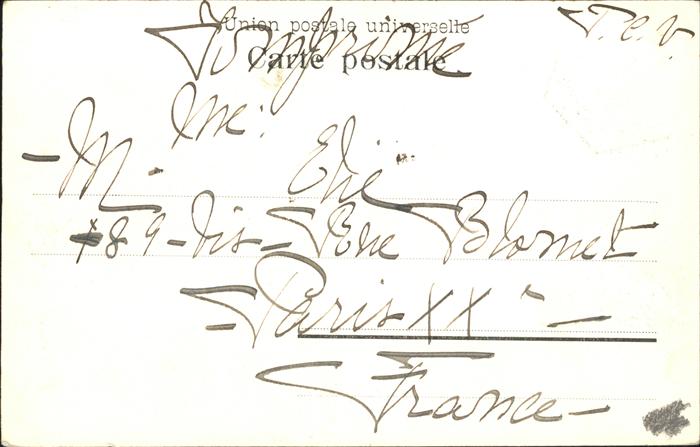 Union postale universelle
Carte postale
Imprimé
T. c. v.
Me:
- M. Elie
89 - bis - Rue Blomet
- Paris XX -
France -